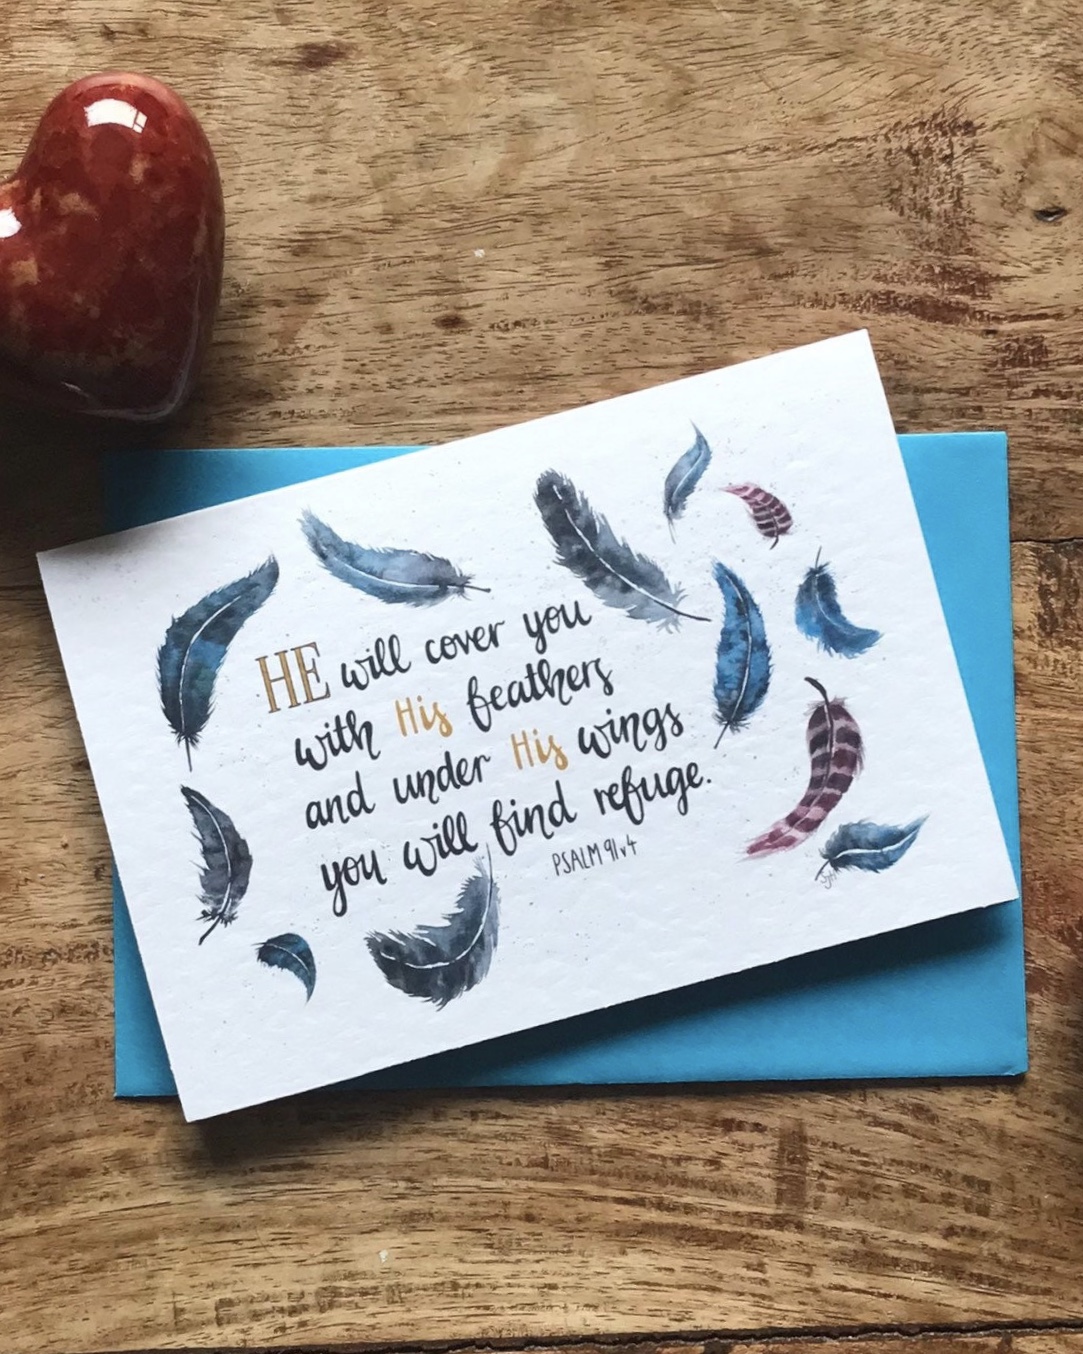 HE will cover you
with His feathers
and under His wings
you will find refuge.
PSALM 91 v 4